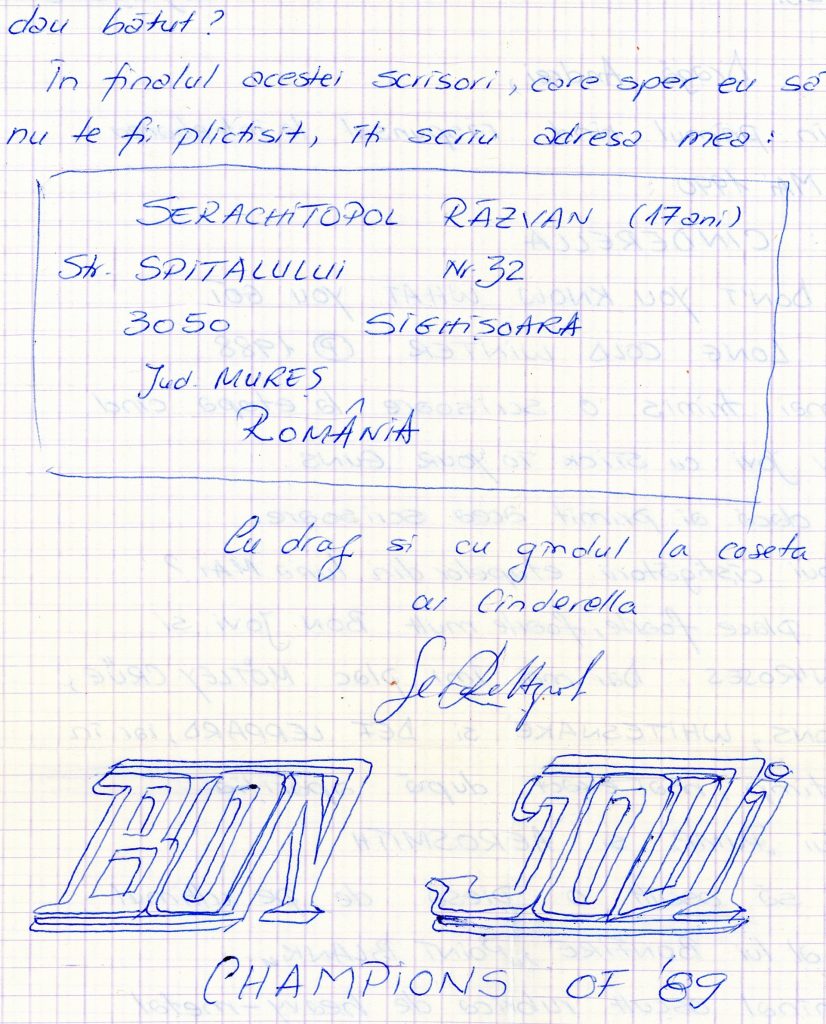 dau bătut?
În finalul acestei scrisori, care sper eu să
nu te fi plictisit, îți scriu adresa mea:
SERACHITOPOL RĂZVAN (17 ani)
Str. SPITALULUI Nr. 32
3050 SIGHIȘOARA
Jud. MUREȘ
ROMÂNIA
Cu drag si cu gîndul la caseta
cu Cinderella
BON JOVI
CHAMPIONS OF '89